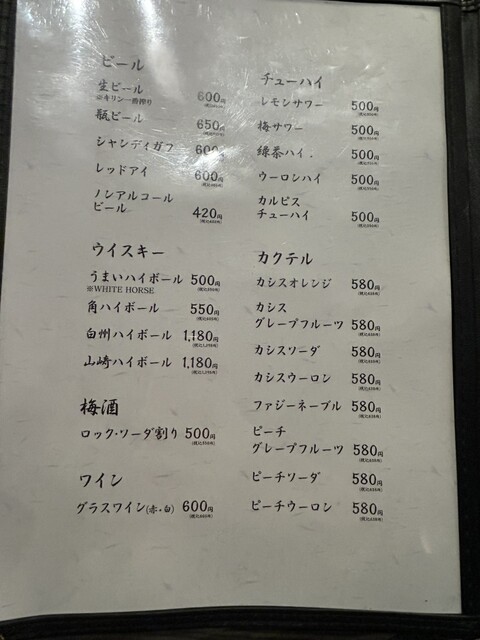 ビール
生ビール 600円
※キリン一番搾り
瓶ビール 650円
シャンディガフ 600円
レッドアイ 600円
ノンアルコール
ビール 420円
ウイスキー
うまいハイボール 500円
※WHITE HORSE
角ハイボール 550円
白州ハイボール 1,180円
山崎ハイボール 1,180円
梅酒
ロック・ソーダ割り 500円
ワイン
グラスワイン(赤・白) 600円
チューハイ
レモンサワー 500円
梅サワー 500円
緑茶ハイ. 500円
ウーロンハイ 500円
カルピス
チューハイ 500円
カクテル
カシスオレンジ 580円
カシス
グレープフルーツ 580円
カシスソーダ 580円
カシスウーロン 580円
ファジーネーブル 580円
ピーチ
グレープフルーツ 580円
ピーチソーダ 580円
ピーチウーロン 580円